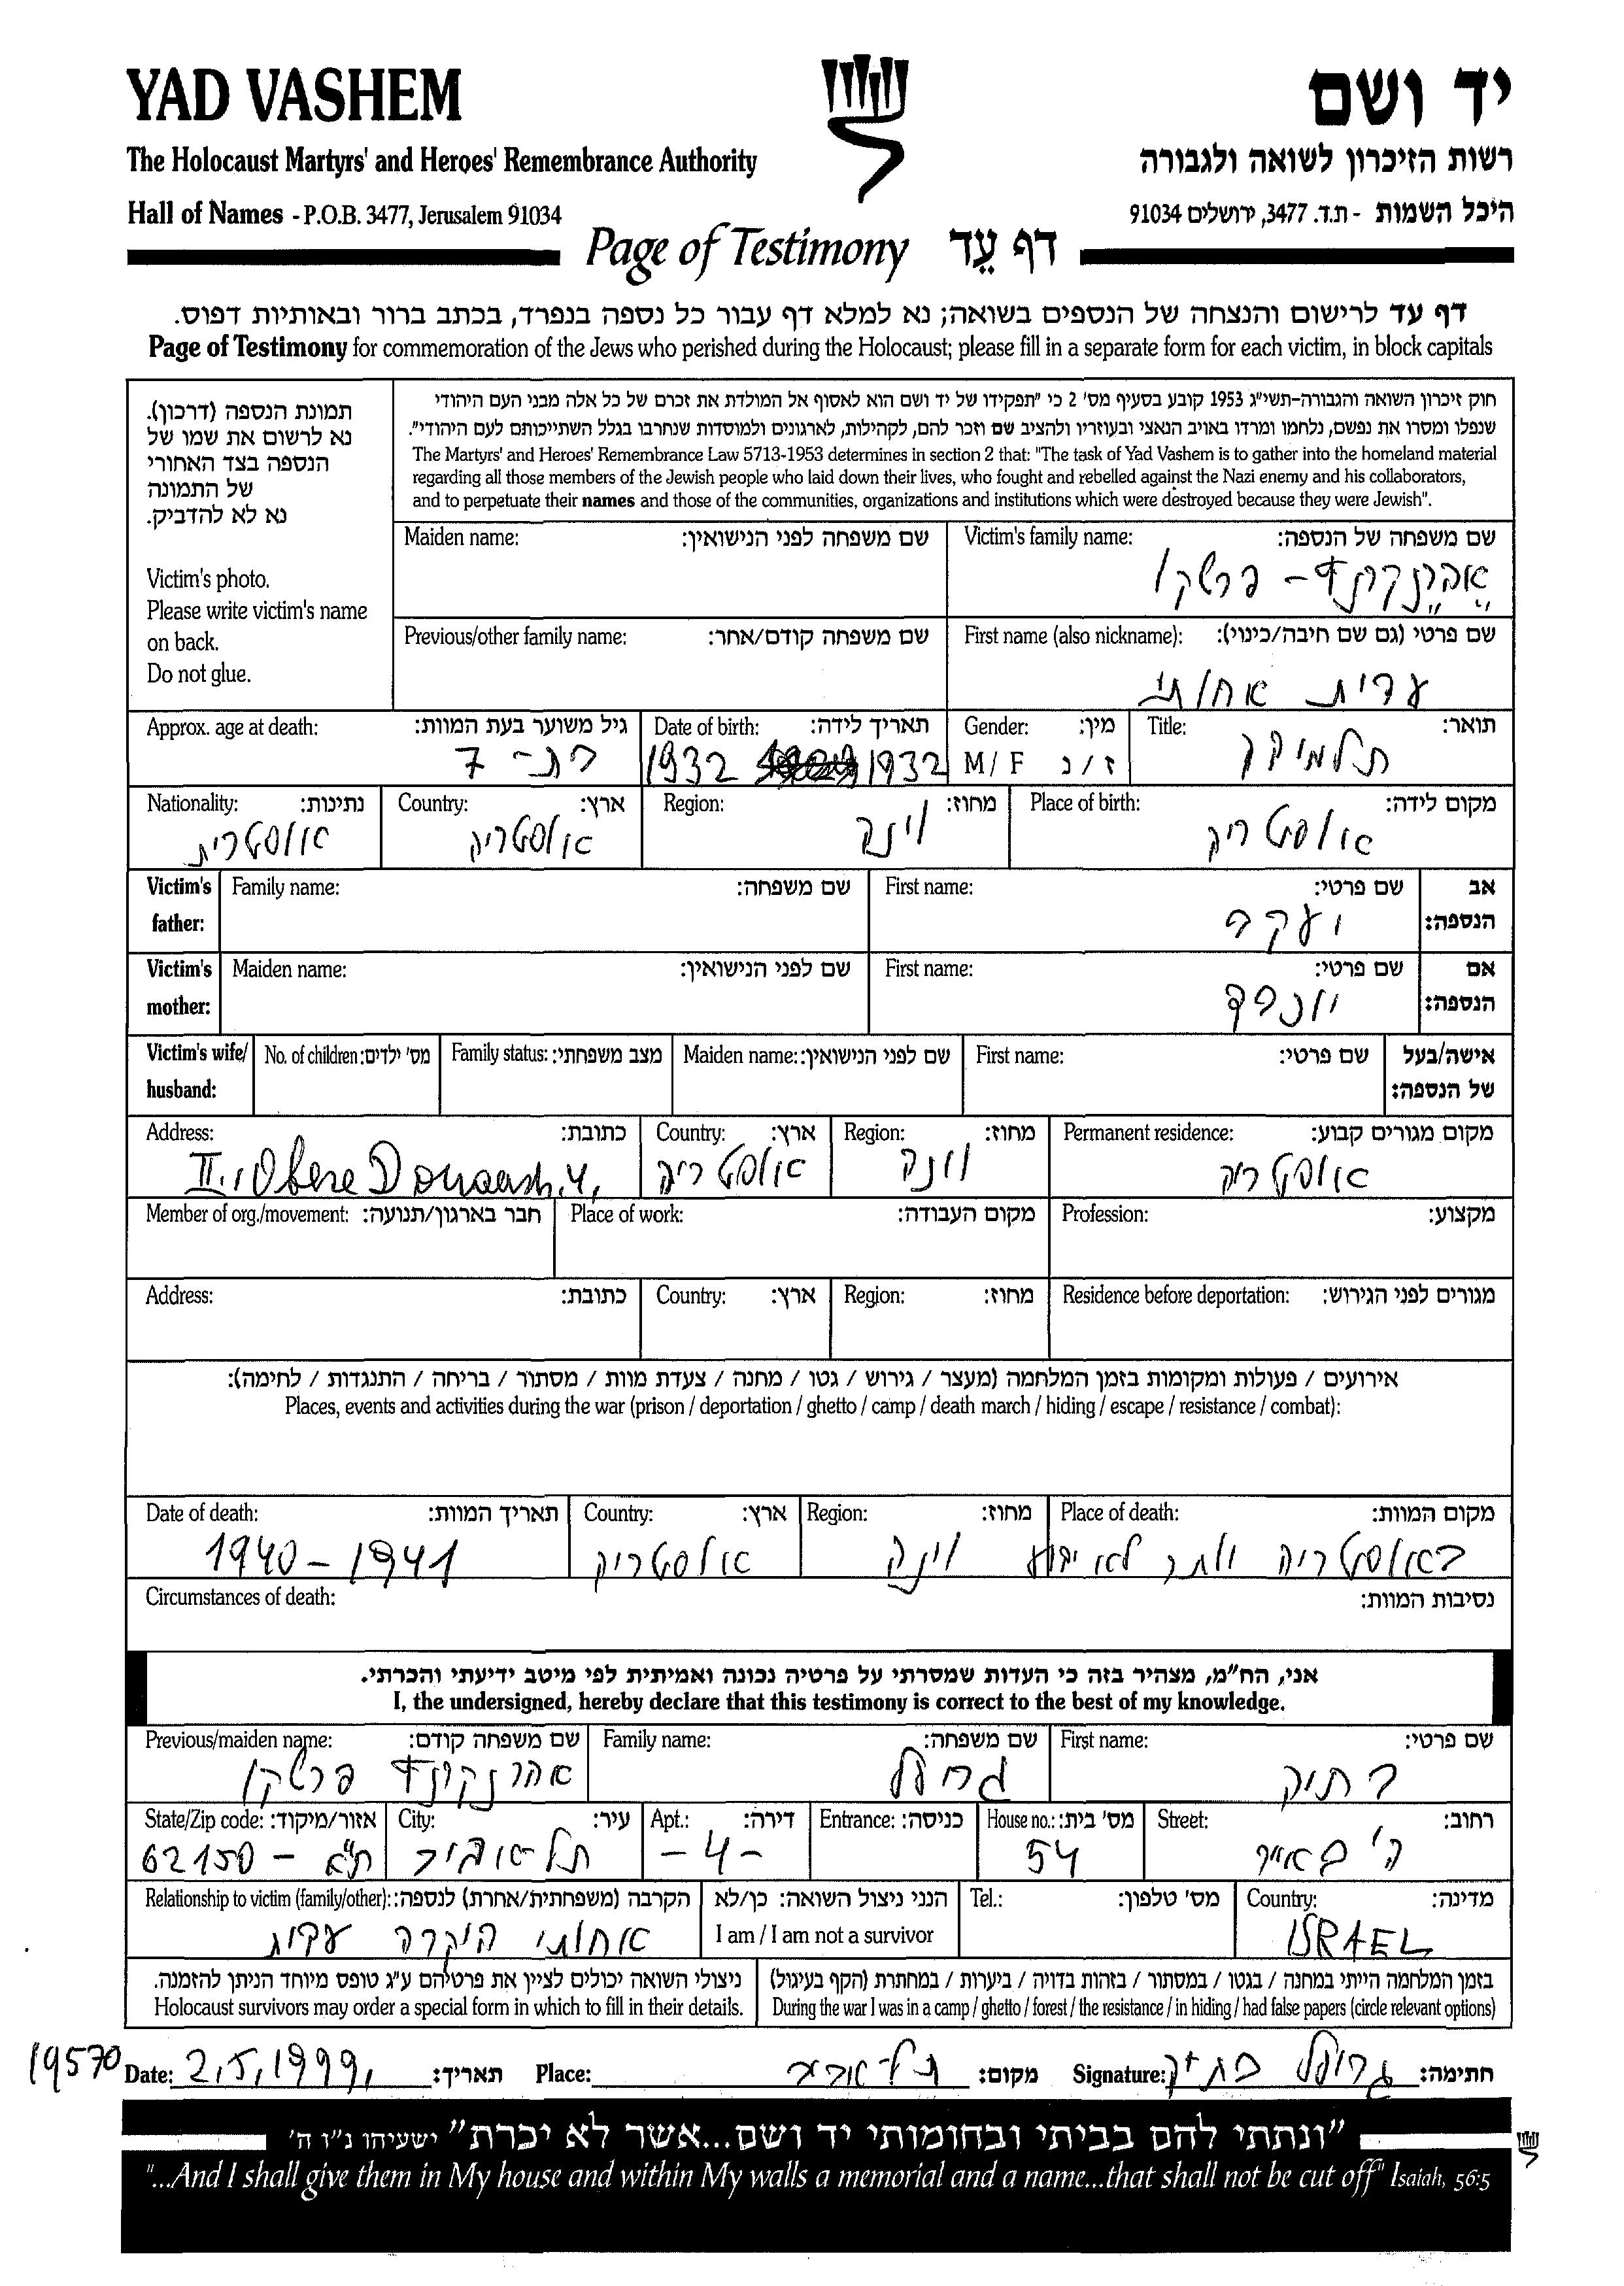 YAD VASHEM
יד ושם
The Holocaust Martyrs' and Heroes' Remembrance Authority
רשות הזיכרון לשואה ולגבורה
Hall of Names - P.O.B. 3477, Jerusalem 91034
היכל השמות - ת.ד. 3477, ירושלים 91034
Page of Testimony דף עֵד
דף עד לרישום והנצחה של הנספים בשואה; נא למלא דף עבור כל נספה בנפרד, בכתב ברור ובאותיות דפוס.
Page of Testimony for commemoration of the Jews who perished during the Holocaust; please fill in a separate form for each victim, in block capitals
תמונת הנספה (דרכון).
נא לרשום את שמו של
הנספה בצד האחורי
של התמונה
נא לא להדביק.
Victim's photo.
Please write victim's name
on back.
Do not glue.
חוק זיכרון השואה והגבורה-תשי"ג 1953 קובע בסעיף מס' 2 כי "תפקידו של יד ושם הוא לאסוף אל המולדת את זכרם של כל אלה מבני העם היהודי
שנפלו ומסרו את נפשם, נלחמו ומרדו באויב הנאצי ובעוזריו ולהציב שם וזכר להם, לקהילות, לארגונים ולמוסדות שנחרבו בגלל השתייכותם לעם היהודי".
The Martyrs' and Heroes' Remembrance Law 5713-1953 determines in section 2 that: "The task of Yad Vashem is to gather into the homeland material
regarding all those members of the Jewish people who laid down their lives, who fought and rebelled against the Nazi enemy and his collaborators,
and to perpetuate their names and those of the communities, organizations and institutions which were destroyed because they were Jewish".
Maiden name: שם משפחה לפני הנישואין: Victim's family name: שם משפחה של הנספה:
Previous/other family name: שם משפחה קודם/אחר: First name (also nickname): שם פרטי (גם שם חיבה/כינוי):
עדית אחותי
Approx. age at death: גיל משוער בעת המוות: Date of birth: תאריך לידה: Gender: מין: Title: תואר:
בת- 7 1932 1932 M / F ז / נ תלמידה
Nationality: נתינות: Country: ארץ: Region: מחוז: Place of birth: מקום לידה:
אוסטרית אוסטריה וינה אוסטריה
Victim's father: Family name: שם משפחה: First name: שם פרטי: אב הנספה:
יעקב
Victim's mother: Maiden name: שם לפני הנישואין: First name: שם פרטי: אם הנספה:
Victim's wife/ husband: No. of children: מס' ילדים: Family status: מצב משפחתי: Maiden name: שם לפני הנישואין: First name: שם פרטי: אישה/בעל של הנספה:
Address: כתובת: Country: ארץ: Region: מחוז: Permanent residence: מקום מגורים קבוע:
II., Obere Donaustr. 4, אוסטריה וינה אוסטריה
Member of org./movement: חבר בארגון/תנועה: Place of work: מקום העבודה: Profession: מקצוע:
Address: כתובת: Country: ארץ: Region: מחוז: Residence before deportation: מגורים לפני הגירוש:
אירועים / פעולות ומקומות בזמן המלחמה (מעצר / גירוש / גטו / מחנה / צעדת מוות / מסתור / בריחה / התנגדות / לחימה):
Places, events and activities during the war (prison / deportation / ghetto / camp / death march / hiding / escape / resistance / combat):
Date of death: תאריך המוות: Country: ארץ: Region: מחוז: Place of death: מקום המוות:
1940 - 1941 אוסטריה וינה באוסטריה יותר לא ידוע
Circumstances of death: נסיבות המוות:
אני, הח"מ, מצהיר בזה כי העדות שמסרתי על פרטיה נכונה ואמיתית לפי מיטב ידיעתי והכרתי.
I, the undersigned, hereby declare that this testimony is correct to the best of my knowledge.
Previous/maiden name: שם משפחה קודם: Family name: שם משפחה: First name: שם פרטי:
State/Zip code: אזור/מיקוד: City: עיר: Apt.: דירה: Entrance: כניסה: House no.: מס' בית: Street: רחוב:
62150 - ת"א תל-אביב -4- 54 ה' באייר
Relationship to victim (family/other): הקרבה (משפחתית/אחרת) לנספה: הנני ניצול השואה: כן/לא Tel.: מס' טלפון: Country: מדינה:
אחותי היקרה עדית I am / I am not a survivor ISRAEL
ניצולי השואה יכולים לציין את פרטיהם ע"ג טופס מיוחד הניתן להזמנה. בזמן המלחמה הייתי במחנה / בגטו / במסתור / בזהות בדויה / ביערות / במחתרת (הקף בעיגול)
Holocaust survivors may order a special form in which to fill in their details. During the war I was in a camp / ghetto / forest / the resistance / in hiding / had false papers (circle relevant options)
19570 Date: 2.5.1999, תאריך: Place: תל אביב מקום: Signature: חתימה:
"ונתתי להם בביתי ובחומותי יד ושם...אשר לא יכרת" ישעיהו נ"ו ה'
"...And I shall give them in My house and within My walls a memorial and a name...that shall not be cut off" Isaiah, 56:5